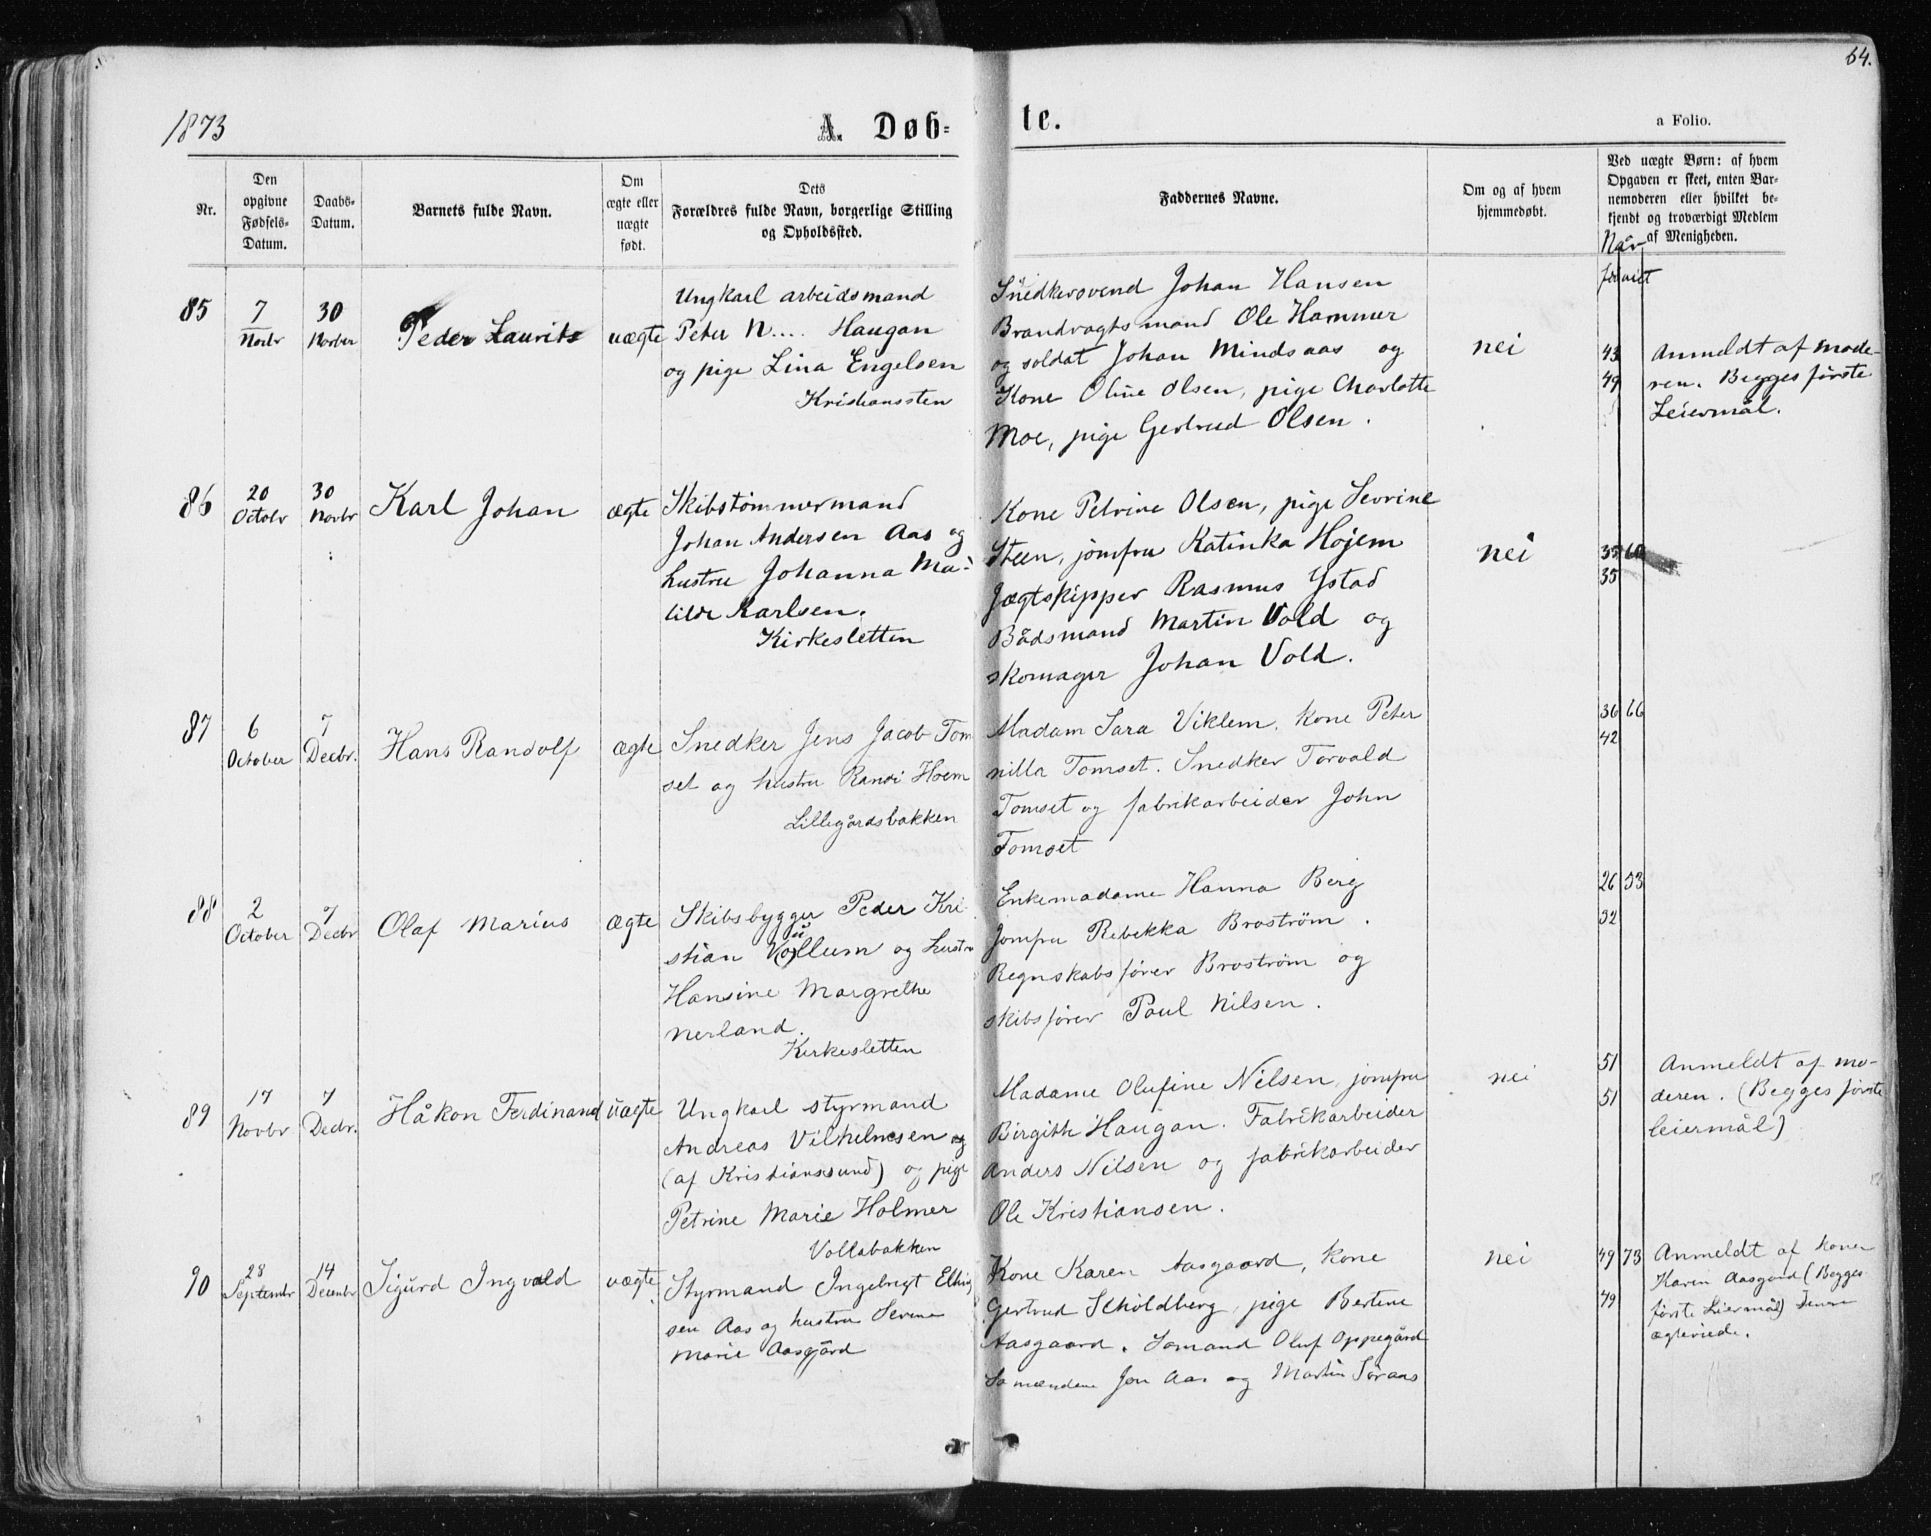 64.
1873
A. Døb-
te.
a Folio.
Nr.
Den
opgivne
Fødsels-
Datum.
Daabs-
Datum.
Barnets fulde Navn.
Om
ægte eller
uægte
født.
Dets
Forældres fulde Navn, borgerlige Stilling
og Opholdssted.
Faddernes Navne.
Om og af hvem
hjemmedøbt.
Ved uægte Børn: af hvem
Opgaven er skeet, enten Bar-
nemoderen eller hvilket be-
kjendt og troværdigt Medlem
af Menigheden.
Når
85
7
Novbr
30
Novber
Peder Laurits
uægte
Ungkarl arbeidsmand
Peter N.... Haugan
og pige Lina Engelsen
Kristianssten
Snedkersvend Johan Hansen
Brandvagtsmand Ole Hammer
og soldat Johan Mindsaas og
Kone Oline Olsen, pige Charlotte
Moe, pige Gertrud Olsen.
nei
43
49
Anmeldt af mode-
ren. Begges første
Leiermål.
86
20
Octobr
30
Novbr
Karl Johan
ægte
Skibstømmermand
Johan Andersen Aas og
hustru Johanna Ma-
tilde Karlsen.
Kirkesletten
Kone Petrine Olsen, pige Sevrine
Steen, jomfru Katinka Højem
Jægtskipper Rasmus Ystad
Bådsmand Martin Vold og
skomager Johan Vold.
nei
35
87
6
October
7
Decbr.
Hans Randolf
ægte
Snedker Jens Jacob Tom
set og hustru Randi Hoem
Lillegårdsbakken
Madam Sara Viklem, Kone Peter
nilla Tomset. Snedker Torvald
Tomset og fabrikarbeider John
Tomset
36 66
42
88
2
October
7
Decbr
Olaf Marius
ægte
Skibsbygger Peder Kri
stian Vo(u)llum og hustru
Hansine Margrethe
Nerland.
Kirkesletten
Enkemadame Hanna Berg
jomfru Rebekka Broström.
Regnskabsfører Broström og
skibsfører Paul Nilsen.
26 53
32
89
17
Novbr
7
Decbr.
Håkon Ferdinand
uægte
Ungkarl styrmand
Andreas Vilhelmsen og
(af Kristianssund) og pige
Petrine Marie Holmer
Vollabakken
Madame Olufine Nilsen, jomfru
Birgith Haugan. Fabrikarbeider
Anders Nilsen og fabrikarbeider
Ole Kristiansen.
nei
51
51
Anmeldt af mo-
deren. (Begges første
leiermål)
90
28
Septembr
14
Decembr
Sigurd Ingvald
uægte
Styrmand Ingebrigt Elling
sen Aas og hustru Serine
Marie Aasgård
Kone Karen Aasgaard, kone
Gertrud Scholdberg, pige Bertine
Aasgaard. Sømand Oluf Oppegård
Sømændene Jon Aas og Martin Søraas
nei
49 73
49
Anmeldt af konen
Karen Aasgard (Begges
første Leiermål) Senere
ægteviede.